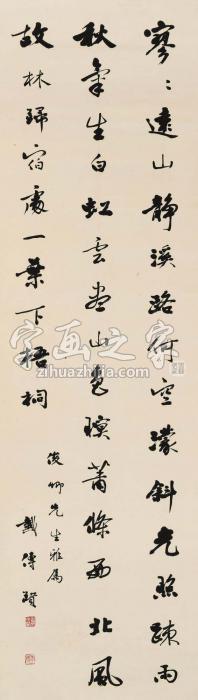 寥〻远山静溪路何空濛斜光照疎雨
秋气生白虹云尽山色暝萧条西北风
故林归宿处一叶下梧桐
俊卿先生雅属
戴传贤
字画之家
zihuazhijia.com